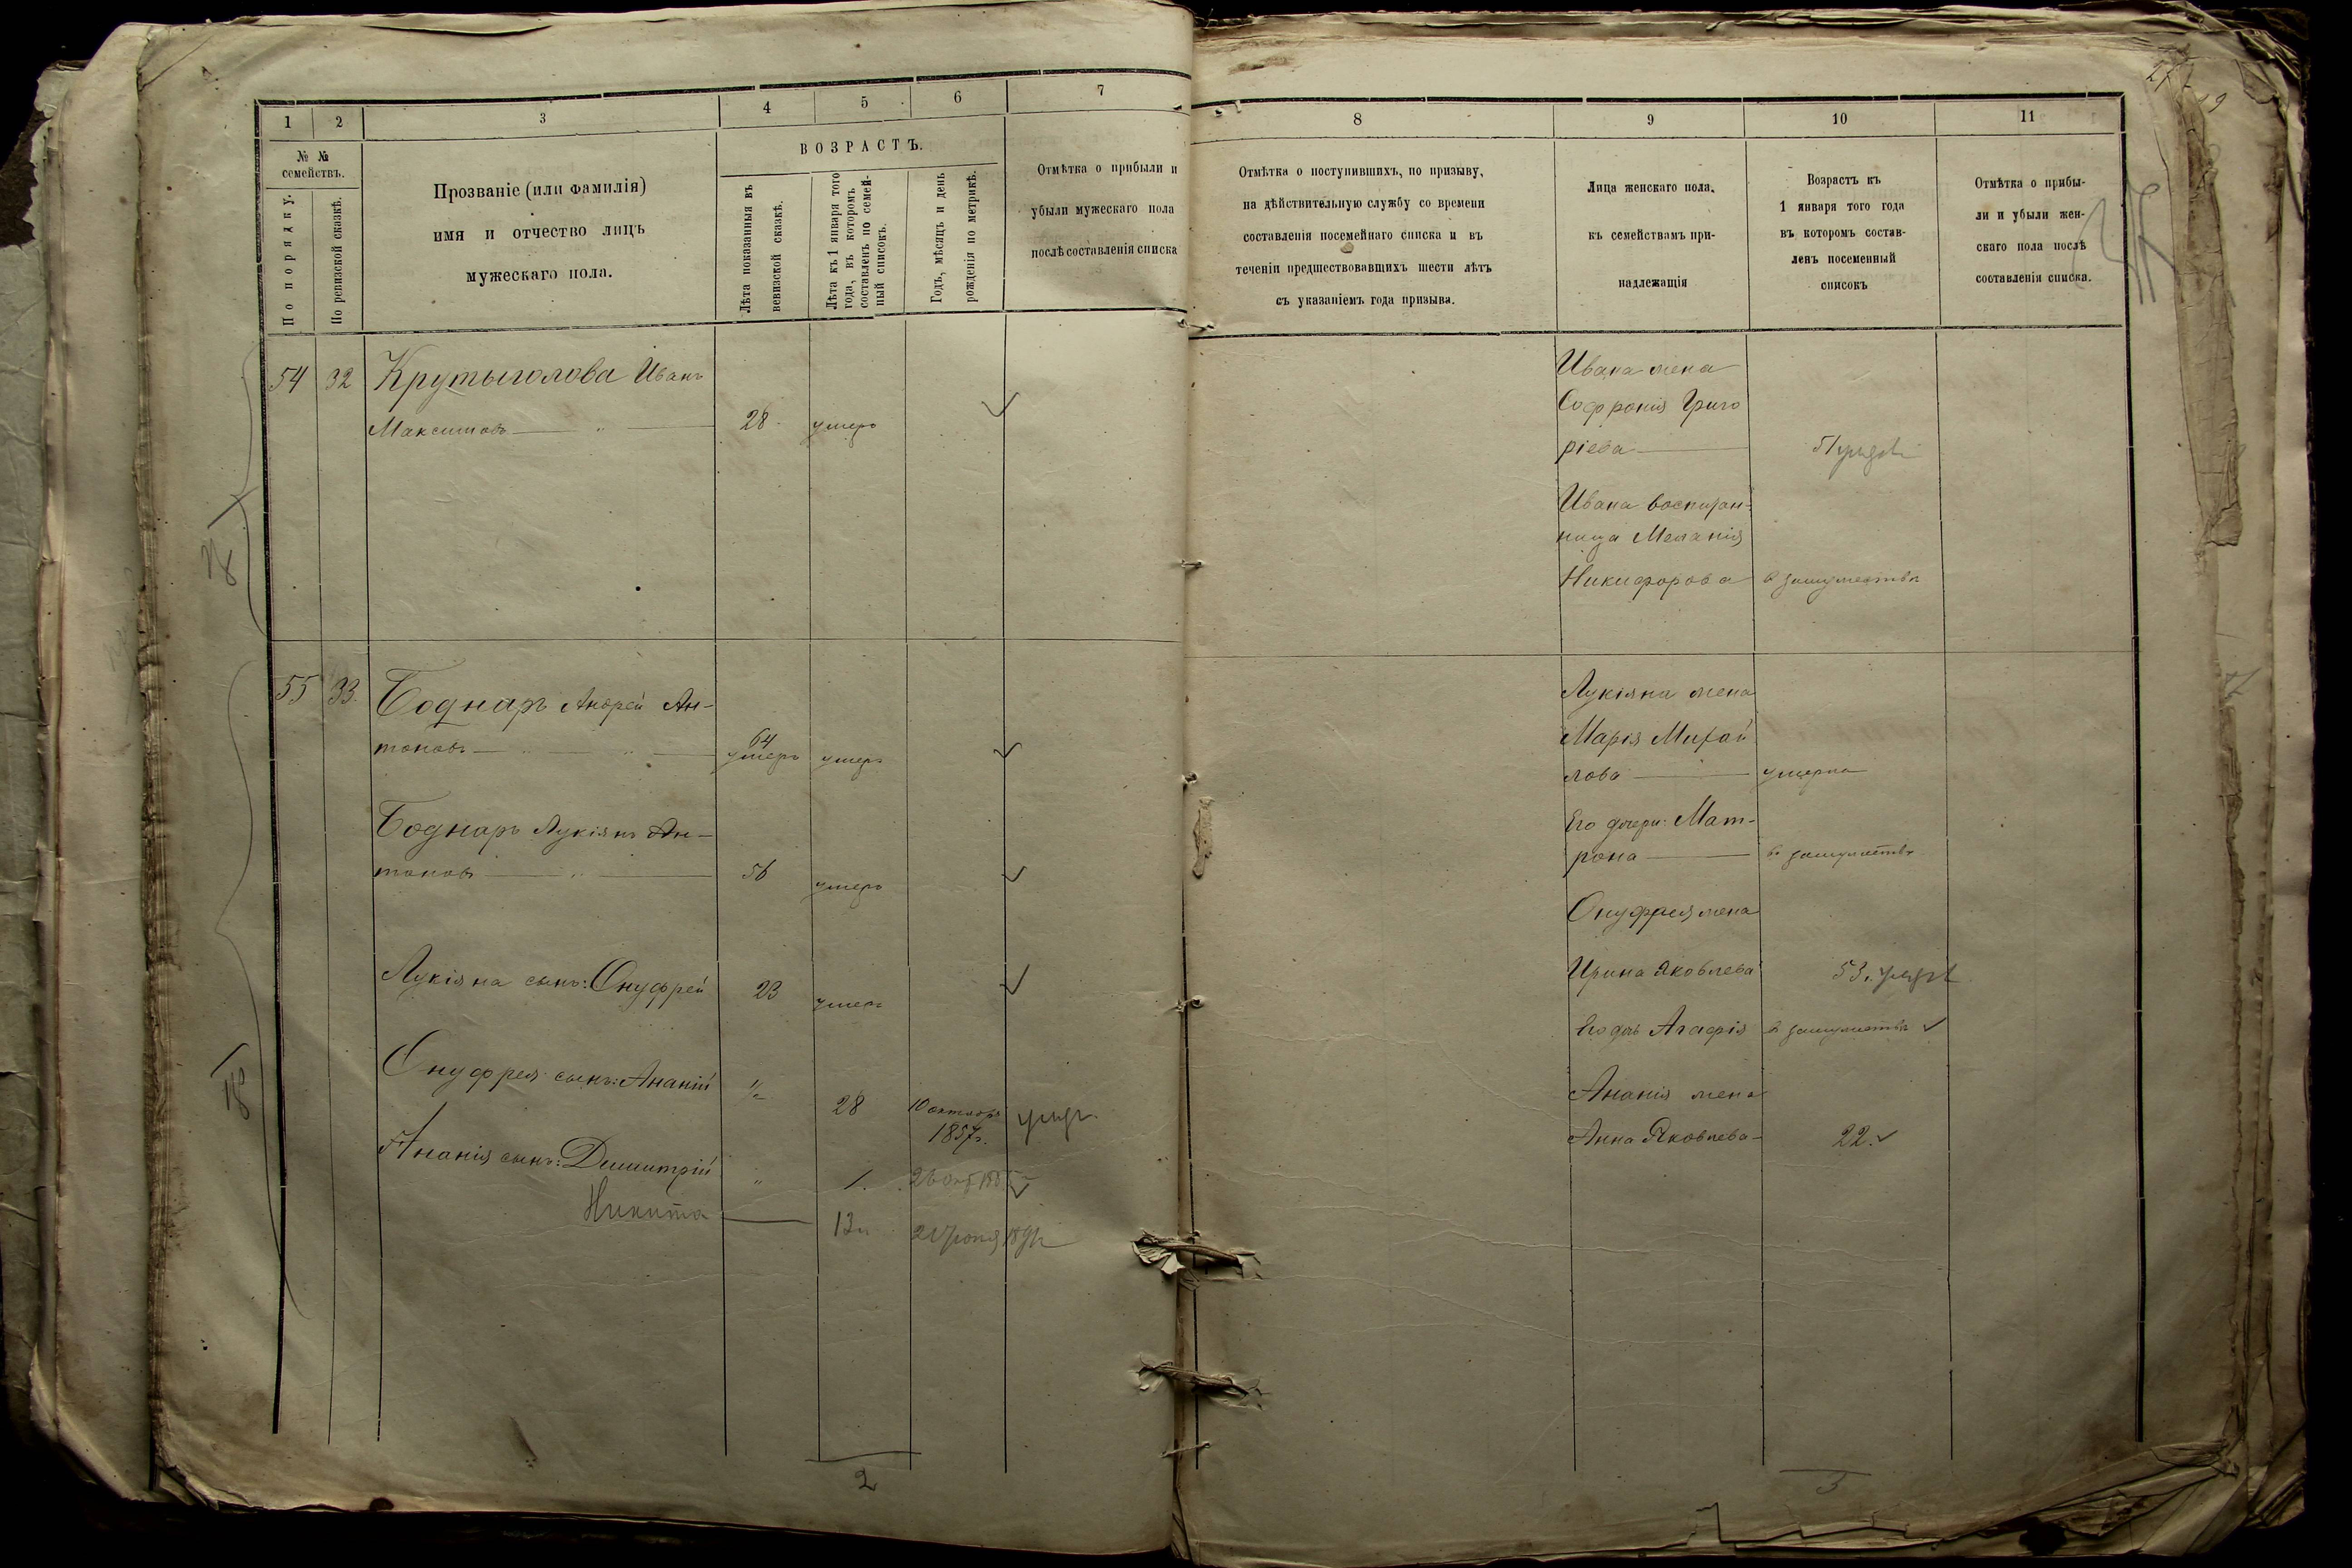 1 2 3 4 5 6 7
№ № семействъ.
По порядку.
По ревизской сказкѣ.
Прозваніе (или фамилія)
имя и отчество лицъ
мужескаго пола.
ВОЗРАСТЪ.
Лѣта показанныя въ
ревизской сказкѣ.
Лѣта къ 1 января того
года, въ которомъ
составленъ по семей-
ный списокъ.
Годъ, мѣсяцъ и день
рожденія по метрикѣ.
Отмѣтка о прибыли и
убыли мужескаго пола
послѣ составленія списка
54 32 Крутыголова Иванъ
Максимовъ — " — 28 умеръ
55 33. Боднаръ Андрей Ан-
тоновъ — " — " — 64
умеръ умеръ
Боднаръ Лукіянъ Ан-
тоновъ — " — 56 умеръ
Лукіяна сынъ: Онуфрей 23 умеръ
Онуфрея сынъ: Ананій " 28 10 октября
1857 г.
Ананія сынъ: Димитрій " 1.
Никита — 13
2
8 9 10 11
Отмѣтка о поступившихъ, по призыву,
на дѣйствительную службу со времени
составленія посемейнаго списка и въ
теченіи предшествовавшихъ шести лѣтъ
съ указаніемъ года призыва.
Лица женскаго пола,
къ семействамъ при-
надлежащія
Возрастъ къ
1 января того года
въ которомъ состав-
ленъ посеменный
списокъ
Отмѣтка о прибы-
ли и убыли жен-
скаго пола послѣ
составленія списка.
Ивана жена
Софронія Григо
ріева — 51
Ивана воспитан-
ница Меланія
Никифорова в замужествѣ
Лукіяна жена
Марія Михай
лова — умерла
Его дочери: Мат-
рона — въ замужествѣ
Онуфрея жена
Ирина Яковлева 53.
Его дочь Агафія в замужествѣ
Ананія жена
Анна Яковлева — 22.
3